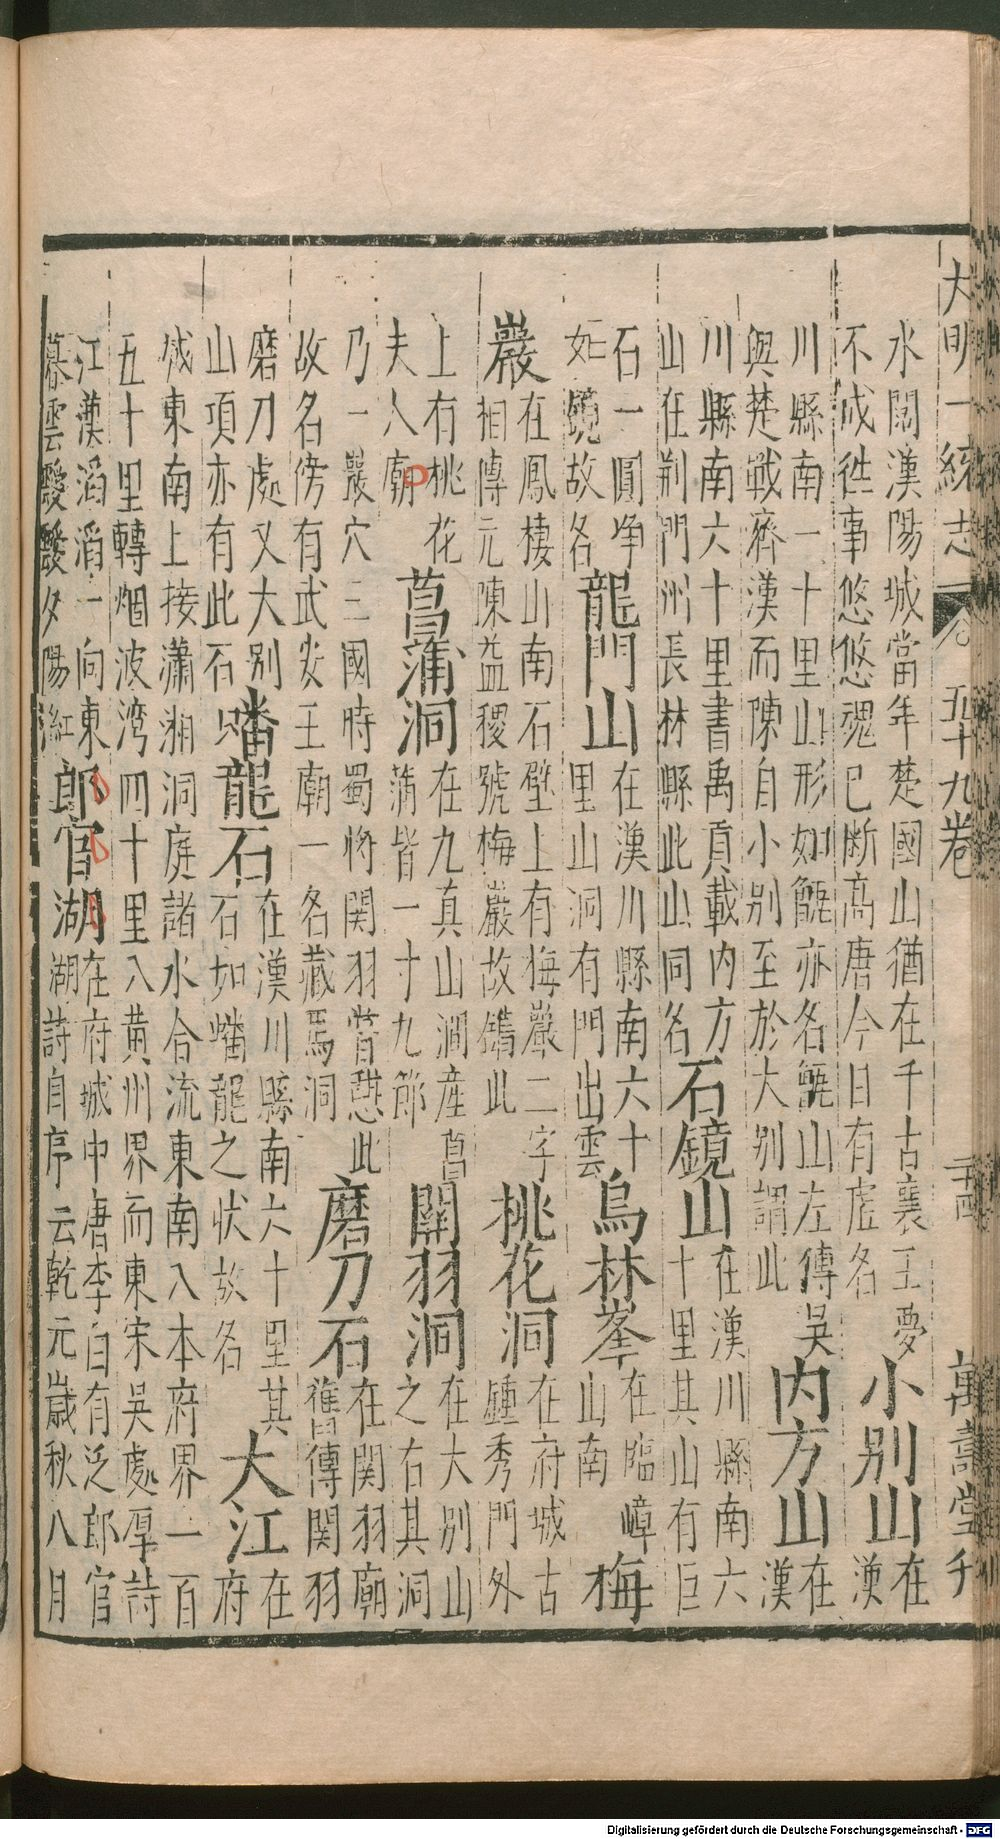 大明一統志 五十九卷 二十四 萬壽堂刊
水闊漢陽城當年楚國山猶在千古襄王夢
不成徃事悠悠魂已断高唐今日有虚名
小别山
在漢
川縣南一十里山形如甑亦名甑山左傳吳
與楚戰濟漢而陳自小别至於大别謂此
内方山
在漢
川縣南六十里書禹貢載内方
山在荆門州長林縣此山同名
石鏡山
在漢川縣南六
十里其山有巨
石一圓净
如鏡故名
龍門山
在漢川縣南六十
里山洞有門出雲
烏林峯
在臨嶂
山南
梅
巖
在鳳棲山南石壁上有梅巖二字
相傳元陳益稷號梅巖故鐫此
桃花洞
在府城古
鍾秀門外
上有桃花
夫人廟
菖蒲洞
在九真山澗產菖
蒲皆一寸九節
關羽洞
在大别山
之右其洞
乃一巖穴三國時蜀将関羽嘗憇此
故名傍有武安王廟一名藏馬洞
磨刀石
在関羽廟
舊傳関羽
磨刀處又大别
山項亦有此石
蟠龍石
在漢川縣南六十里其
石如蟠龍之状故名
大江
在府
城東南上接瀟湘洞庭諸水合流東南入本府界一百
五十里轉烟波湾四十里入黄州界而東宋吳處厚詩
江漢滔滔一向東
暮雲靉靆夕陽紅
郎官湖
在府城中唐李白有泛郎官
湖詩自序云乾元歳秋八月
Digitalisierung gefördert durch die Deutsche Forschungsgemeinschaft - DFG